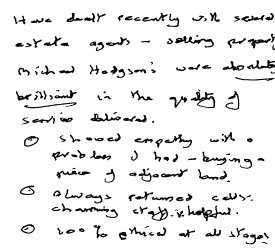 Have dealt recently with several
estate agents - selling property
Michael Hodgson's were absolutely
brilliant in the quality of
service delivered.
① Showed empathy with a
problem I had - buying a
piece of adjacent land.
② Always returned calls.
charming staff. & helpful.
③ 100% ethical at all stages